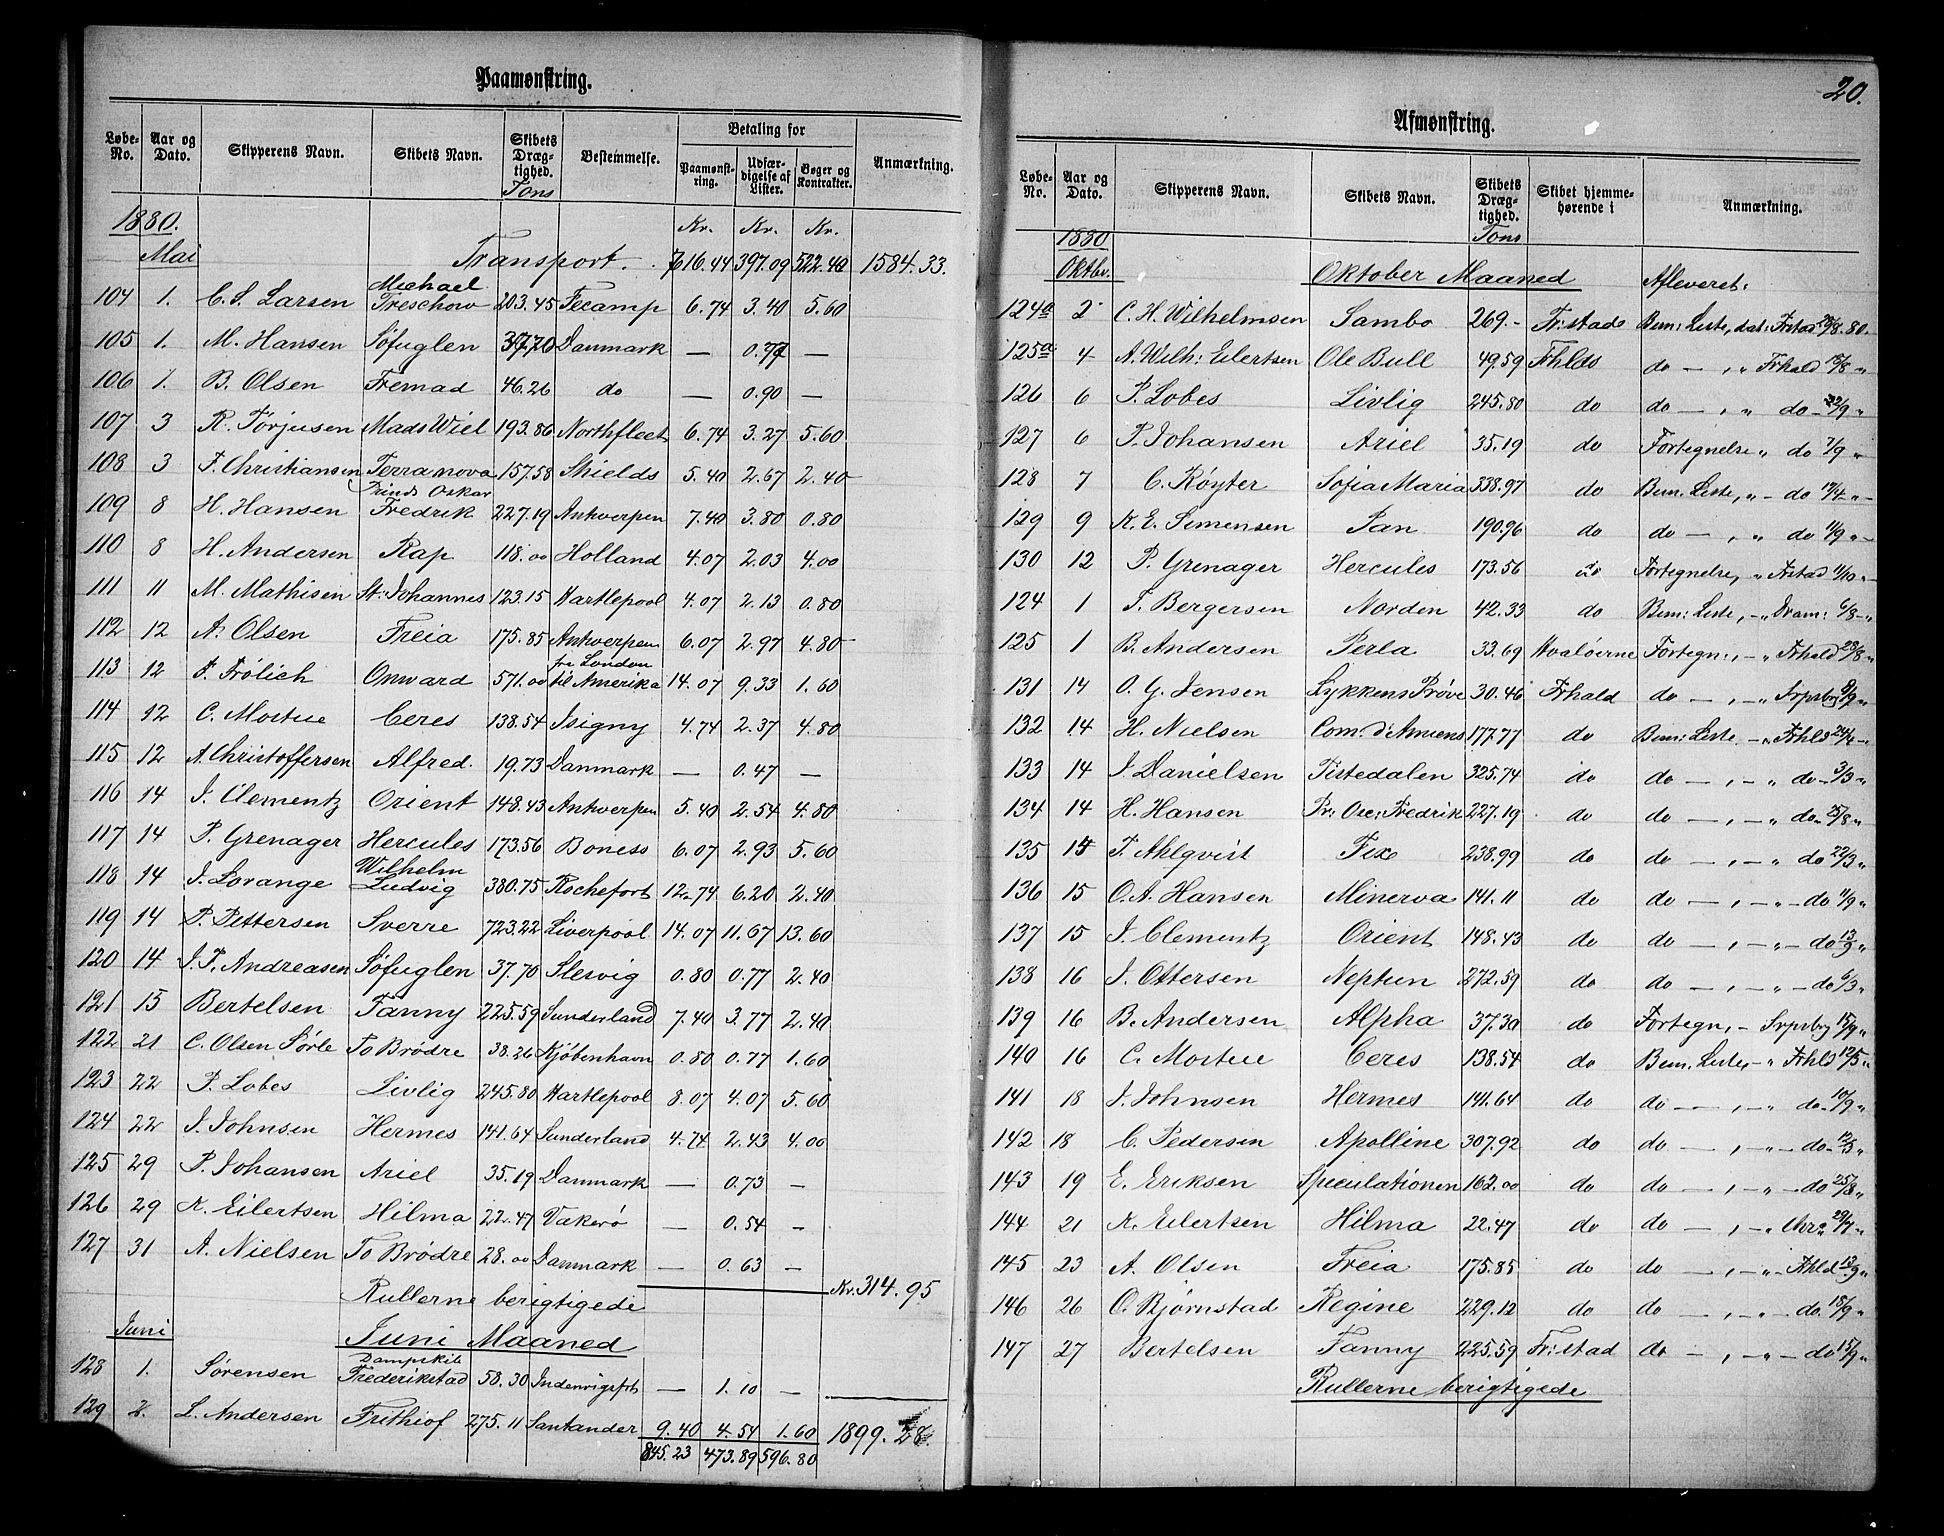 Paamønstring.
Løbe-No. | Aar og Dato. | Skipperens Navn. | Skibets Navn. | Skibets Dræg-tighed. Tons | Bestemmelse. | Betaling for | Paamønst-ring. | Udfær-digelse af Lister. | Bøger og Kontrakter. | Anmærkning.
1880. Kr. Kr. Kr.
Mai Transport. 716.44 397.09 522.40 1584.33.
104 1. C. S. Larsen Michael Treschow 203.45 Fecamp 6.74 3.40 5.60
105 1. M. Hansen Søfuglen 37.70 Danmark — 0.77 —
106 1. B. Olsen Fremad 46.26 do — 0.90 —
107 3 R. Tørjusen Mads Wiel 193.86 Northfleet 6.74 3.27 5.60
108 3 F. Christiansen Terranova 157.58 Shields 5.40 2.67 2.40
109 8 H. Hansen Prinds Oskar Fredrik 227.19 Antwerpen 7.40 3.80 0.80
110 8 H. Andersen Rap 118.00 Holland 4.07 2.03 4.00
111 11 M. Mathisen St. Johannes 123.15 Hartlepool 4.07 2.13 0.80
112 12 A. Olsen Freia 175.85 Antwerpen 6.07 2.97 4.80
113 12 F. Frølich Onward 571.00 fra London til Amerika 14.07 9.33 1.60
114 12 C. Mostue Ceres 138.54 Isigny 4.74 2.37 4.80
115 12 A. Christoffersen Alfred. 19.73 Danmark — 0.47 —
116 14 J. Clementz Orient 148.43 Antwerpen 5.40 2.54 4.80
117 14 P. Grenager Hercules 173.56 Boness 6.07 2.93 5.60
118 14 J. Lorange Wilhelm Ludvig 380.75 Rochefort 12.74 6.20 2.40
119 14 P. Pettersen Sverre 723.22 Liverpool 14.07 11.67 13.60
120 14 J. P. Andreasen Søfuglen 37.70 Slesvig 0.80 0.77 2.40
121 15 Bertelsen Fanny 225.59 Sunderland 7.40 3.77 2.40
122 21 C. Olsen Sørle To Brødre 38.26 Kjøbenhavn 0.80 0.77 1.60
123 22 P. Lobes Livlig 245.80 Hartlepool 8.07 4.07 5.60
124 22 J. Johnsen Hermes 141.64 Sunderland 4.74 2.43 4.00
125 29 P. Johansen Ariel 35.19 Danmark — 0.73 —
126 29 K. Eilertsen Hilma 22.47 Vækerø — 0.54 —
127 31 A. Nielsen To Brødre 28.00 Danmark — 0.63 —
Kr. 314.95
Rullerne berigtigede
Juni Juni Maaned
128 1. Sørensen Dampskib Frederikstad 58.30 Indenrigsfrt — 1.10 —
129 2. L. Andersen Frithiof 275.11 Santander 9.40 4.54 1.60 1899.28.
845.23 473.89 596.80
20.
Afmønstring.
Løbe-No. | Aar og Dato. | Skipperens Navn. | Skibets Navn. | Skibets Dræg-tighed. Tons | Skibet hjemme-hørende i | Anmærkning.
1880
Oktbr. Oktober Maaned Afleveret:
124a 2 C. H. Wilhelmsen Sambo 269.- Fr:stads Bem: Liste, dat: Frstad /8. 80.
125a 4 A. Wilh: Eilertsen Ole Bull 49.59 Frhlds do — , „ Frhald /8 „
126 6 P. Lobes Livlig 245.80 do do — , „ do 22/9 „
127 6 P. Johansen Ariel 35.19 do Fortegnelse „ do 7/9 „
128 7 C. Røyter Sofia Maria 338.97 do Bem. Liste, „ - do 17/4 „
129 9 K. E. Simensen Pan 190.96 do do — , „ do 11/9 „
130 12 P. Grenager Hercules 173.56 do Fortegnelse, „ Frstad 11/10 „
124 1 F. Bergersen Norden 42.33 do Bem: Liste, - „ Dram: 6/8 - „
125 1 B. Andersen Perla 33.69 Hvaløerne Fortegn:, - „ Frhald 23/8 „
131 14 O. G. Jensen Lykkens Prøve 30.46 Frhald do — , - „ Srpsbrg /9 „
132 14 H. Nielsen Com. d'Amiens 177.77 do Bem: Liste - „ Frhld 24/4 „
133 14 J. Danielsen Tistedalen 325.74 do do — , - „ do 3/3 „
134 14 H. Hansen Pr: Osc: Fredrik 227.19 do do — , - „ do 25/8 „
135 15 F. Ahlqvist Fix 238.99 do do — , - „ do 22/3 „
136 15 O. A. Hansen Minerva 141.11 do do — , - „ do 11/9 „
137 15 J. Clementz Orient 148.43 do do — , - „ do 13/9 „
138 16 J. Ottersen Neptun 272.59 do do — , - „ do 6/3 „
139 16 B. Andersen Alpha 37.30 do Fortegn, - Srpsbrg 15/9 „
140 16 C. Mostue Ceres 138.54 do Bem. Liste, - „ Frhld 12/5 „
141 18 J. Johnsen Hermes 141.64 do do — , - „ do 10/9 „
142 18 C. Pedersen Apolline 307.92 do do — , - „ do 12/5 „
143 19 E. Eriksen Speculationen 162.00 do do — , - „ do 25/8 „
144 21 K. Eilertsen Hilma 22.47 do do — , - „ Chra 29/7 „
145 23 A. Olsen Freia 175.85 do do — , - „ Frhld 13/9 „
146 26 O. Bjørnstad Regine 229.12 do do — , „ do. 18/9 „
147 27 Bertelsen Fanny 225.59 Fr:stad do — , - „ do 15/9 „
Rullerne berigtigede